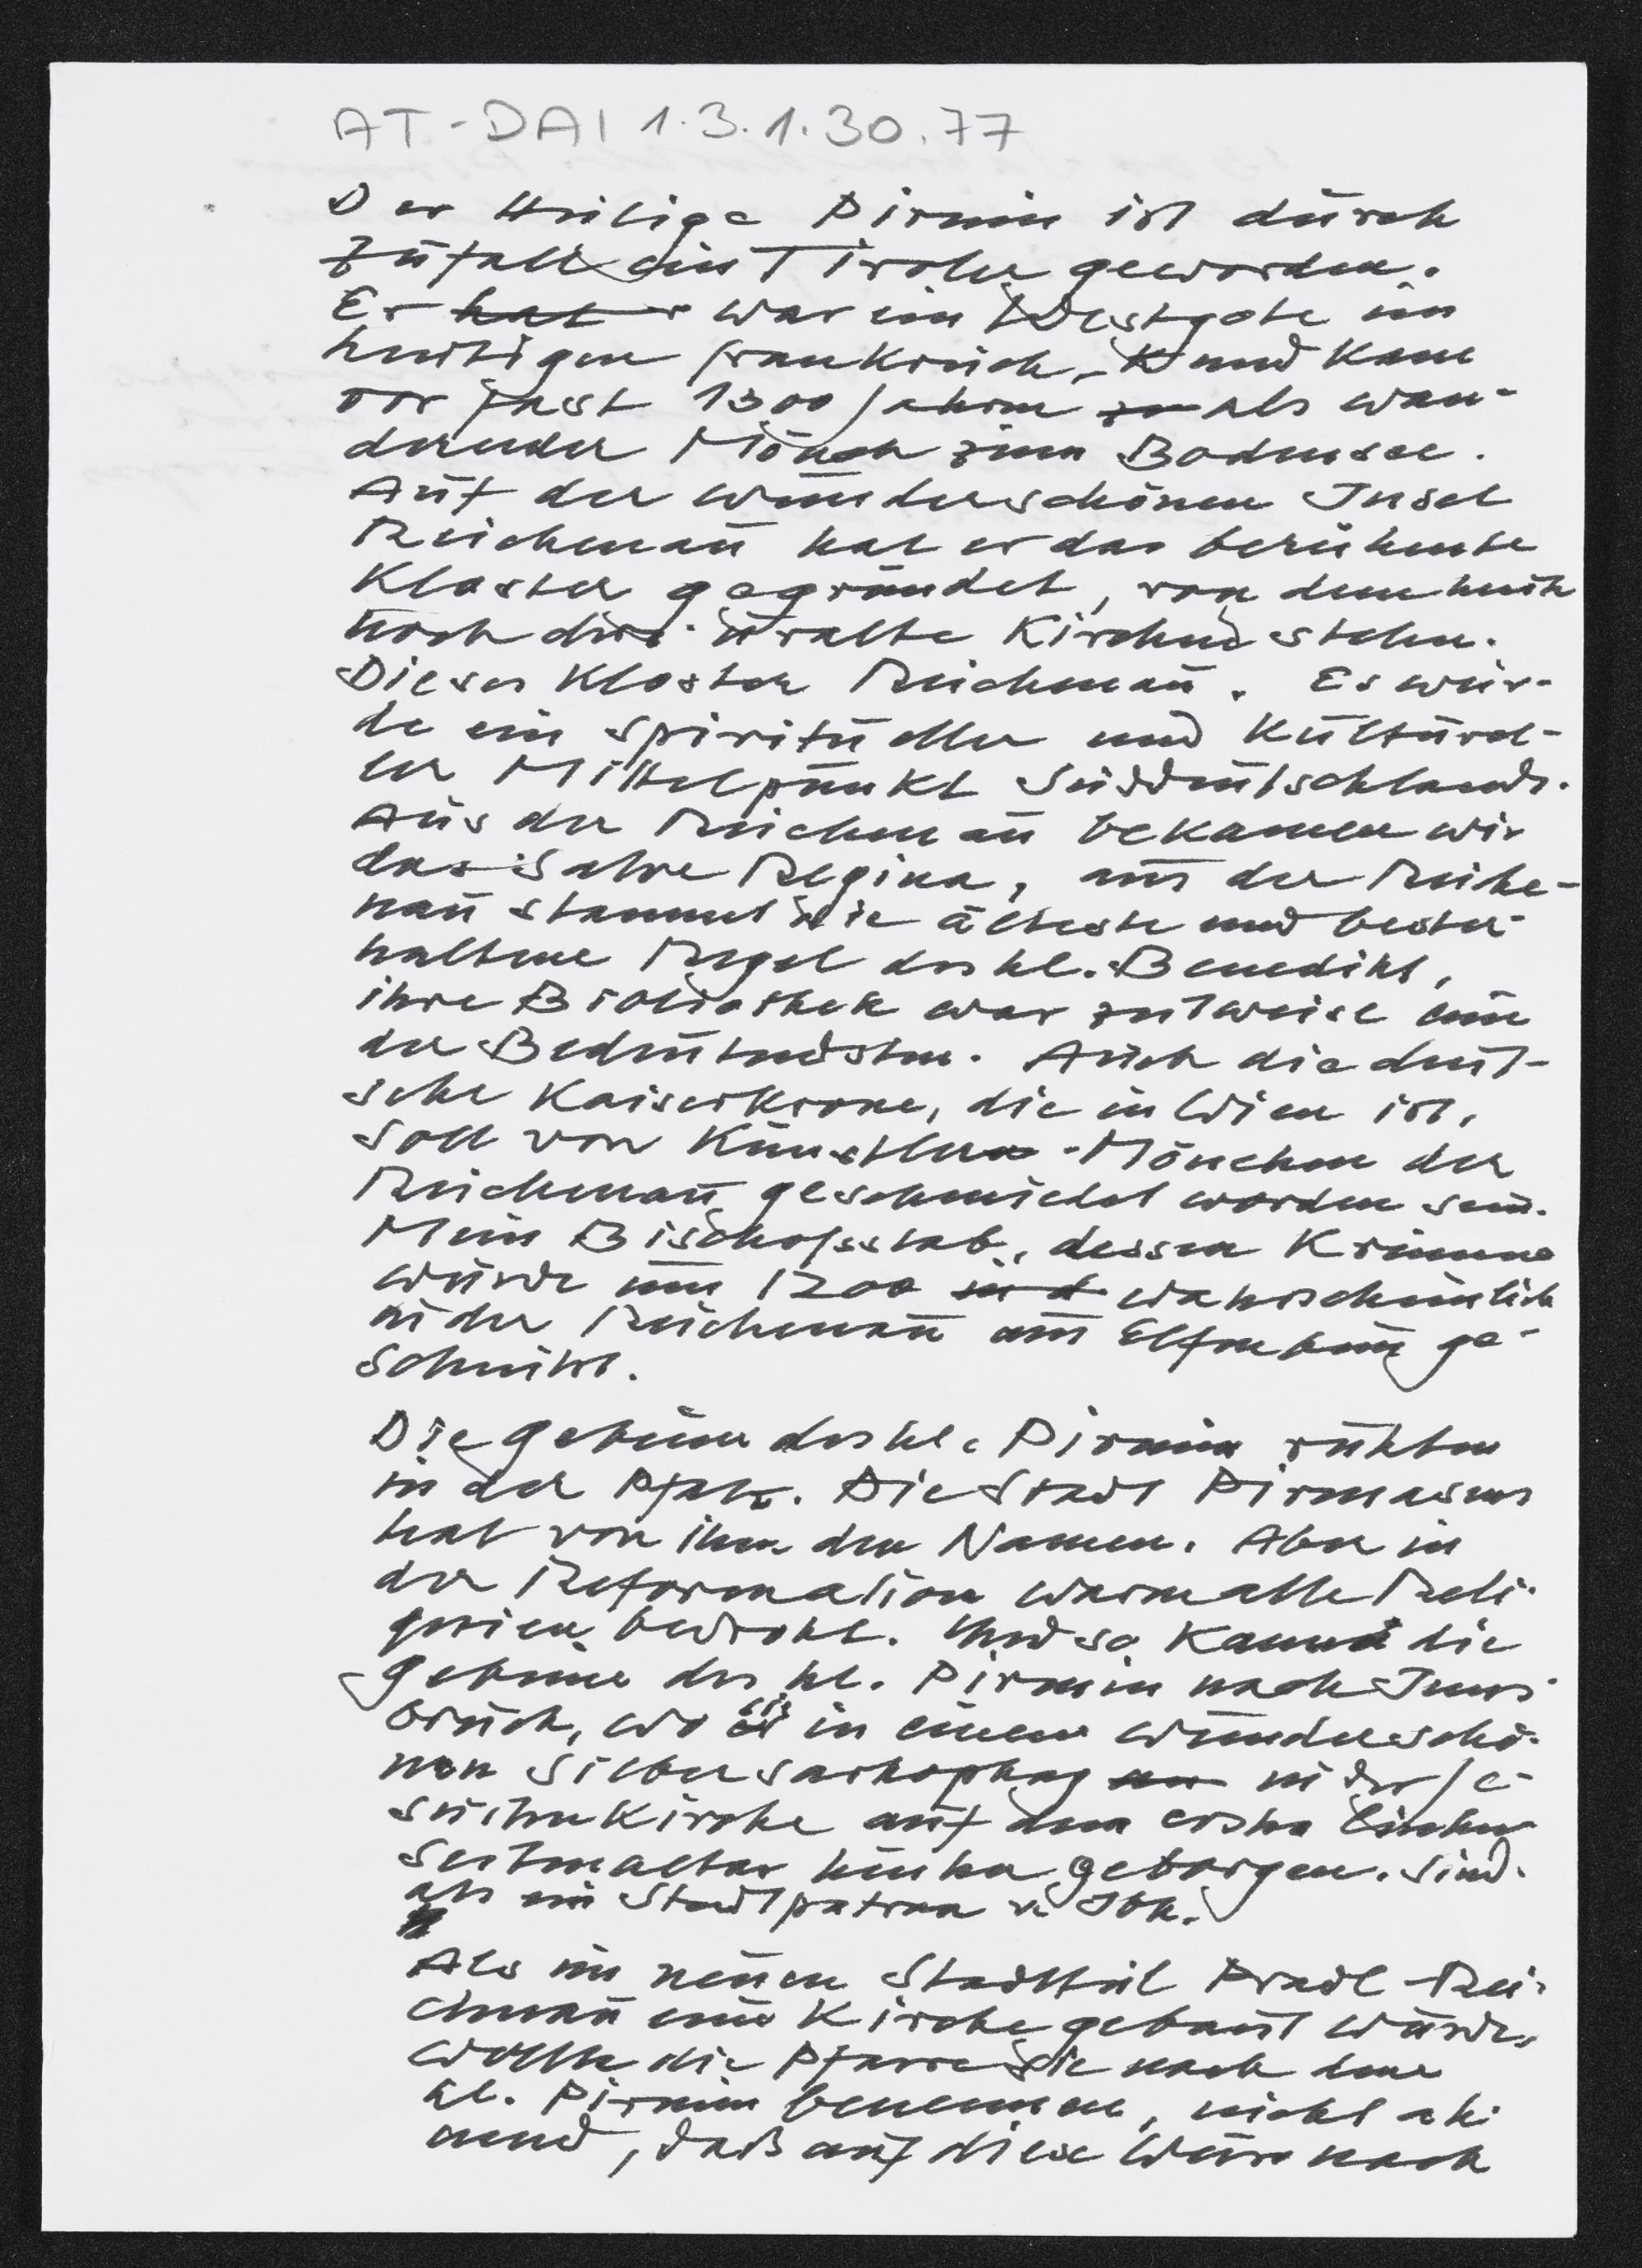 AT-DAI 1.3.1.30.77
Der Heilige Pirmin ist durch
Zufall ein Tiroler geworden.
Er hat war ein Westgote im
heutigen Frankreich, und kam
vor fast 1300 Jahren zu als wan-
dernder Mönch zum Bodensee.
Auf der wunderschönen Insel
Reichenau hat er das berühmte
Kloster gegründet, von dem heute
noch drei uralte Kirchen stehen.
Dieses Kloster Reichenau. Es wur-
de ein spiritueller und kulturel-
ler Mittelpunkt Süddeutschlands.
Aus der Reichenau bekamen wir
das Salve Regina, aus der Reiche-
nau stammt die älteste und bester-
haltene Regel des hl. Benedikt,
ihre Bibliothek war zeitweise eine
der Bedeutendsten. Auch die deut-
sche Kaiserkrone, die in Wien ist,
soll von Künstler-Mönchen der
Reichenau geschmiedet worden sein.
Mein Bischofsstab, dessen Krümme
wurde um 1200 in d wahrscheinlich
in der Reichenau aus Elfenbein ge-
schnitzt.
Die Gebeine des hl. Pirmin ruhten
in der Pfalz. Die Stadt Pirmasens
hat von ihm den Namen. Aber in
der Reformation waren alle Reli-
quien bedroht. Und so kamen die
Gebeine des hl. Pirmin nach Inns-
bruck, wo sie in einem wunderschö-
nen Silbersarkophag in der Je-
suitenkirche auf dem ersten linken
Seitenaltar hinten geborgen. sind.
als ein Stadtpatron v. Ibk.
Als im neuen Stadtteil Pradl-Rei-
chenau eine Kirche gebaut wurde,
wollte die Pfarre sie nach dem
hl. Pirmin benennen, nicht ah-
nend, daß auf diese Weise nach